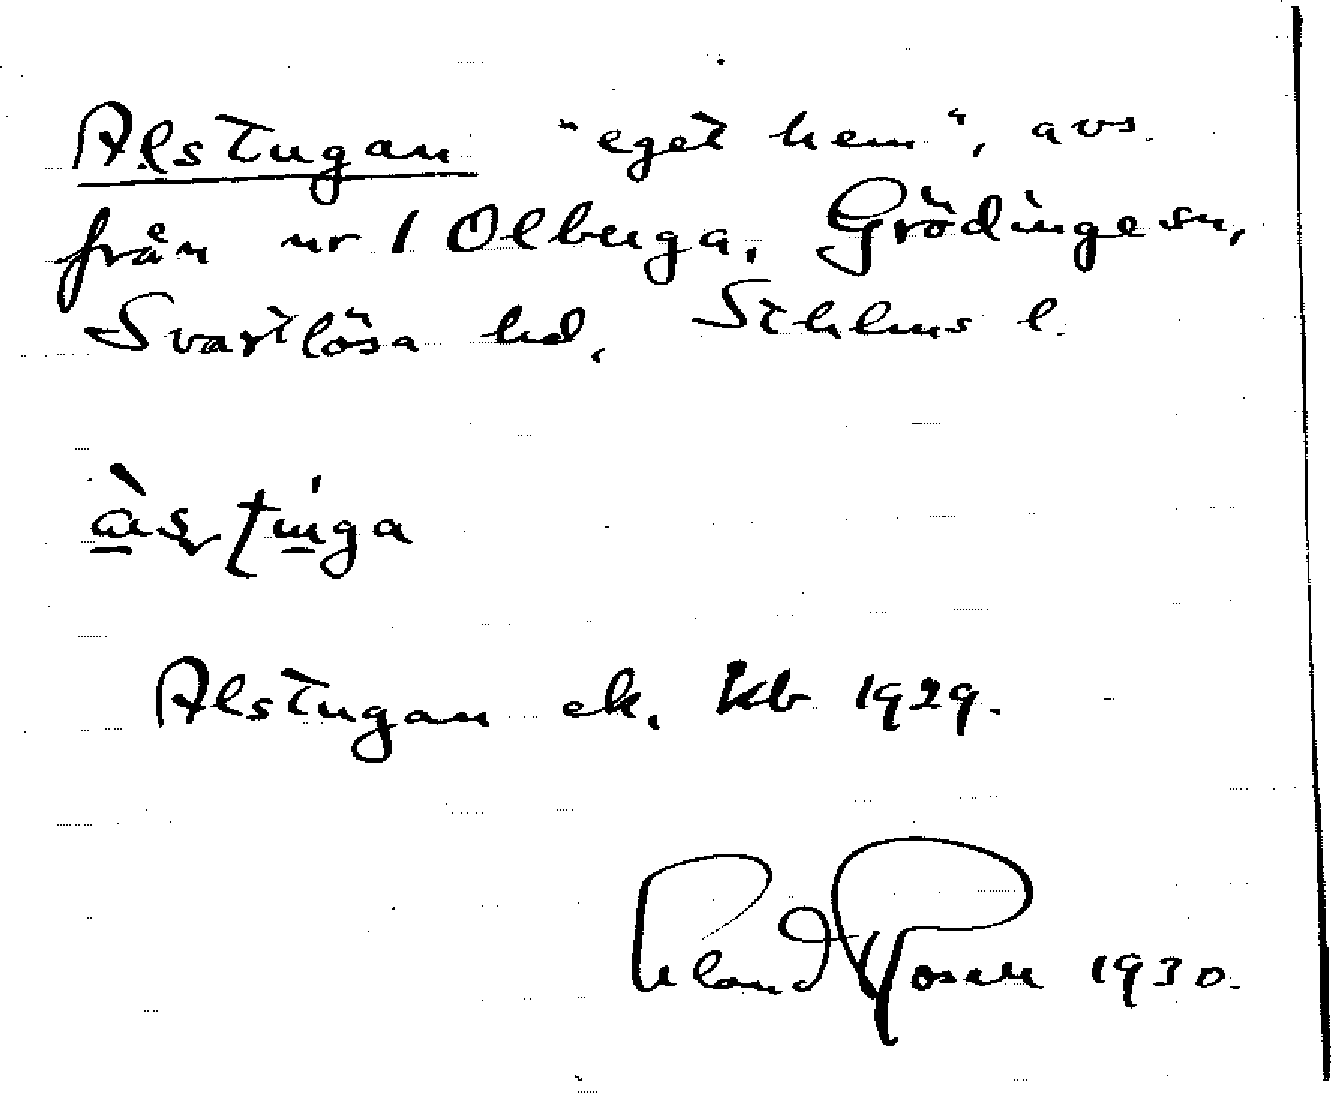 Alstugan "eget hem", avs.
från nr 1 Olberga, Grödinge sn,
Svartlösa hd, Sthlms l.
Alstugan ek. kb 1929.
Rosén 1930.